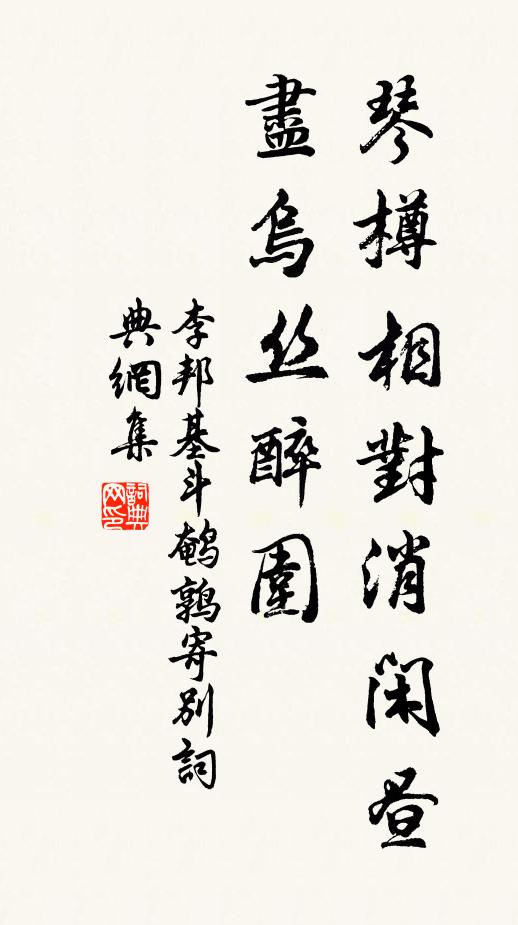 琴樽相對消閑昼
盡烏丝醉圍
李邦基斗鹌鹑寄别詞
典網集
詞典
网印